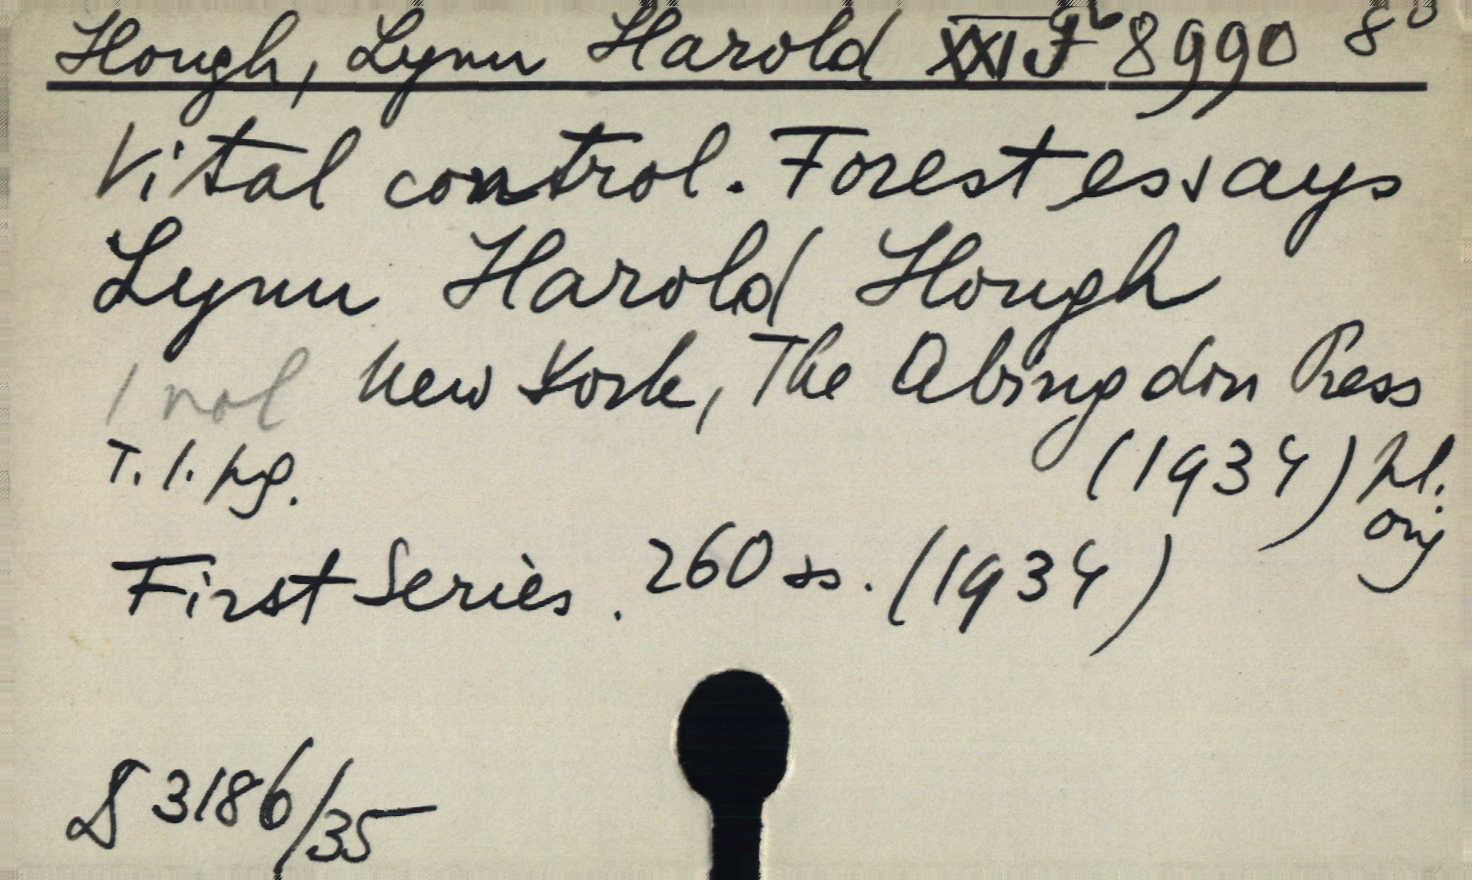 Hough, Lynn Harold XXI J gb 8990 8°
Vital control. Forest essays
Lynn Harold Hough
New York, The Abingdon Press
1 vol
T. 1. pg. (1934) pl.
orig
First Series. 260 ss. (1934)
S 3186/35